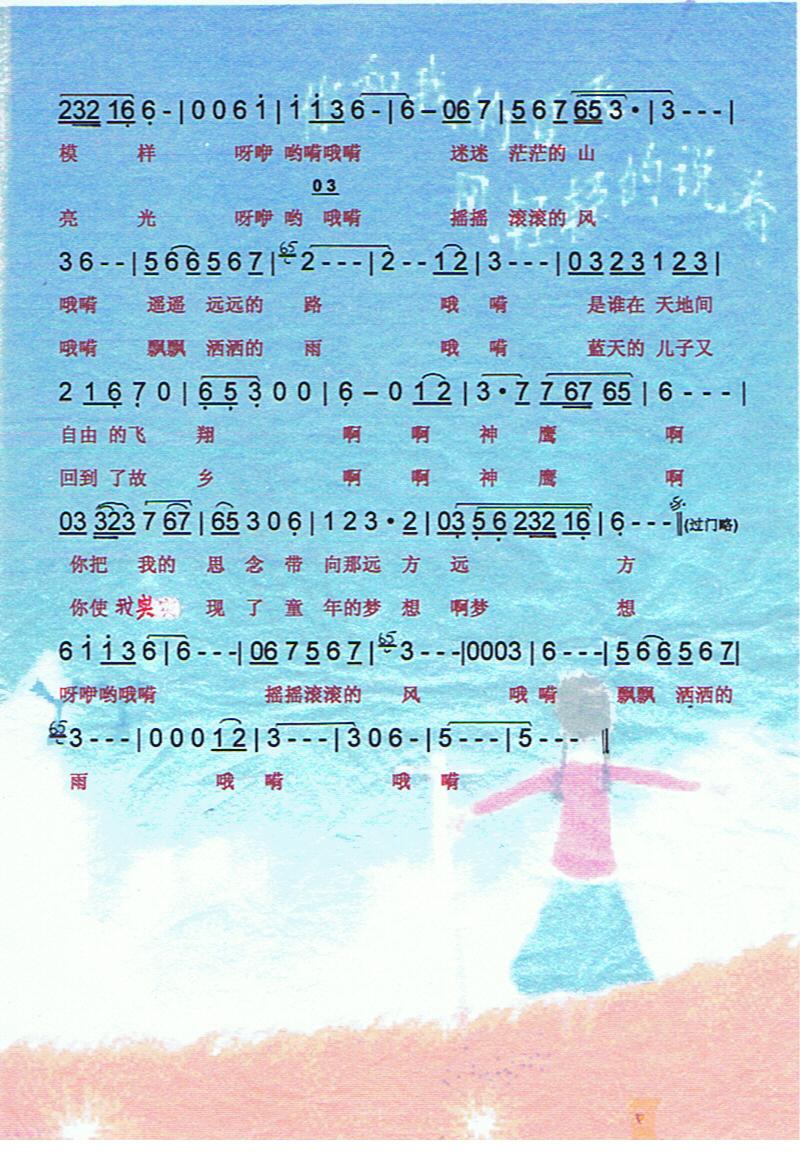 你和我的
风轻轻的说着
232 16 6 - | 0 0 6 i | i i3 6 - | 6 – 06 7 | 5 6 7 65 3 • | 3 - - - |
模 样 呀咿 哟嗬哦嗬 迷迷 茫茫的 山
0 3
亮 光 呀咿 哟 哦嗬 摇摇 滚滚的 风
3 6 - - | 5 6 6 5 6 7 | 65 2 - - - | 2 - - 1 2 | 3 - - - | 0 3 2 3 1 2 3 |
哦嗬 遥遥 远远的 路 哦 嗬 是谁在 天地间
哦嗬 飘飘 洒洒的 雨 哦 嗬 蓝天的 儿子又
2 1 6 7 0 | 6 5 3 0 0 | 6 – 0 1 2 | 3 • 7 7 67 65 | 6 - - - |
自由 的飞 翔 啊 啊 神 鹰 啊
回到 了故 乡 啊 啊 神 鹰 啊
03 323 7 67 | 65 3 0 6 | 1 2 3 • 2 | 03 5 6 232 16 | 6 - - - ‖ (过门略)
你把 我的 思 念 带 向那远 方 远 方
你使 我实 现 了 童 年的梦 想 啊梦 想
6 i i3 6 | 6 - - - | 06 7 5 6 7 | 65 3 - - - | 0003 | 6 - - - | 5 6 6 5 6 7 |
呀咿哟哦嗬 摇摇滚滚的 风 哦 嗬 飘飘 洒洒的
65 3 - - - | 0 0 0 1 2 | 3 - - - | 3 0 6 - | 5 - - - | 5 - - - ‖
雨 哦 嗬 哦 嗬